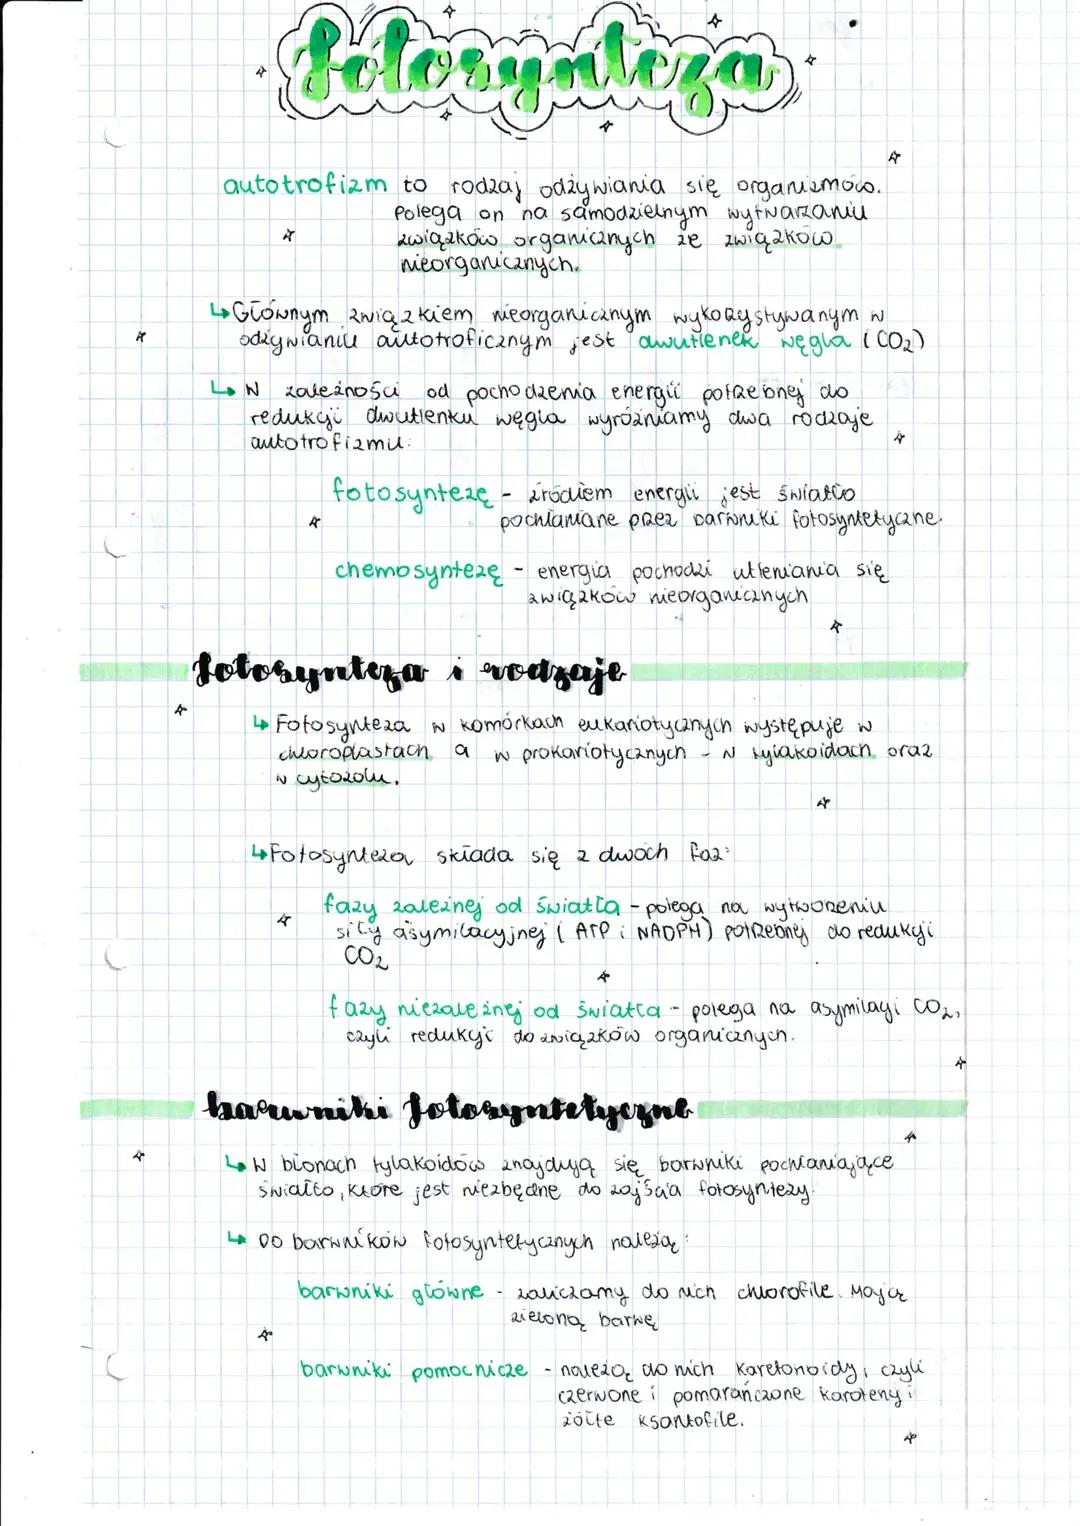 fotosynteza
autotrofizm to rodzaj odżywiania się organizmów.
Polega on na samodzielnym wytwarzaniu
związków organicznych ze związków
nieorganicznych.
↳ Głównym związkiem nieorganicznym wykorzystywanym w
odżywianiu autotroficznym jest dwutlenek węgla (CO₂)
↳ W zależności od pochodzenia energii potrzebnej do
redukcji dwutlenku węgla wyróżniamy dwa rodzaje
autotrofizmu:
fotosyntezę - źródłem energii jest światło
pochłaniane przez barwniki fotosyntetyczne.
chemosyntezę - energia pochodzi utleniania się
związków nieorganicznych
fotosynteza i rodzaje
↳ Fotosynteza w komórkach eukariotycznych występuje w
chloroplastach a w prokariotycznych - w tylakoidach oraz
w cytozolu.
↳ Fotosynteza składa się z dwóch faz:
fazy zależnej od światła - polega na wytworzeniu
siły asymilacyjnej (ATP i NADPH) potrzebnej do redukcji
CO₂
fazy niezależnej od światła - polega na asymilacji CO₂,
czyli redukcji do związków organicznych.
barwniki fotosyntetyczne
↳ W błonach tylakoidów znajdują się barwniki pochłaniające
światło, które jest niezbędne do zajścia fotosyntezy.
↳ Do barwników fotosyntetycznych należą:
barwniki główne - zaliczamy do nich chlorofile. Mają
zieloną barwę
barwniki pomocnicze - należą do nich karetonoidy, czyli
czerwone i pomarańczone karoteny i
żółte ksantofile.